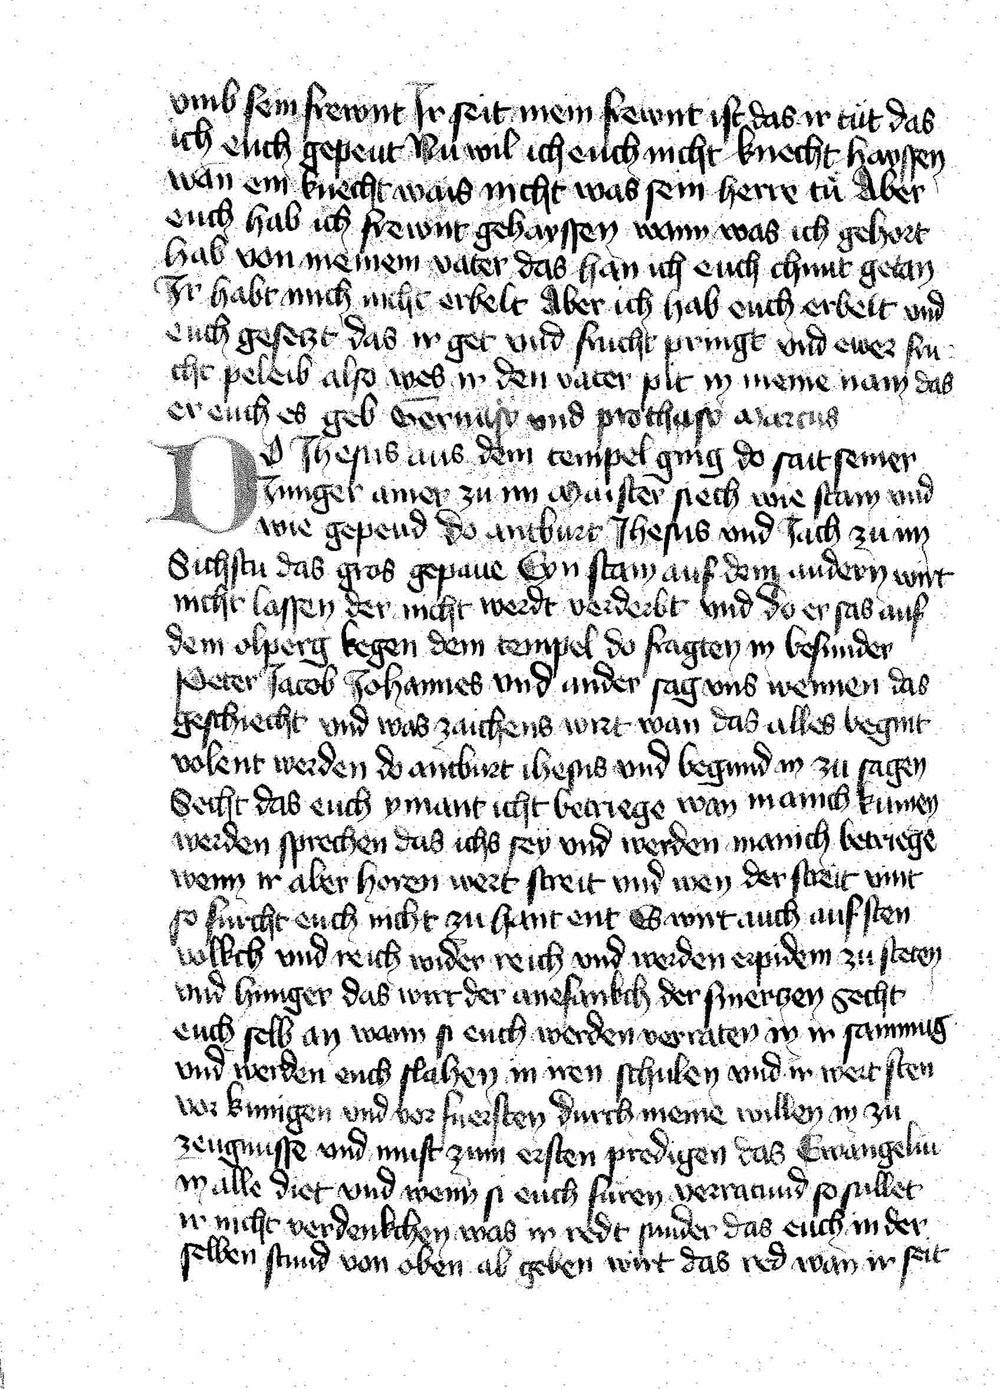 vmb sein frewnt Ir seit mein frewnt ist das ir tut das
ich euch gepeut Nu wil ich euch nicht knecht hayssen
wan ein knecht wais nicht was sein herre tů Aber
euch hab ich frewnt gehayssen wann was ich gehort
hab von meinem vater das han ich euch chunt getan
Ir habt mich nicht erbelt Aber ich hab euch erbelt vnd
euch gesetzt das ir get vnd frucht pringt vnd ewer fru
cht peleib also wes ir den vater pit in meine nam das
er euch es geb Geruaso vnd prothaso Marcus
DO Ihesus aus dem tempel ging do sait seiner
Iunger ainer zu im Maister siech wie stain vnd
wie gepeud do antburt Ihesus vnd Iach zu im
Sichstu das gros gepaue Eyn stain auf dem andern wirt
nicht lassen der nicht werdt verderbt vnd do er sas auf
dem olperg kegen dem tempel do fragten in besunder
Peter Iacob Iohannes vnd ander sag vns wennen das
geschiecht vnd was zaichens wirt wan das alles begint
volent werden do antburt ihesus vnd begund in zu sagen
Secht das euch ymant icht betriege wan manich kumen
werden sprechen das ichs sey vnd werden manich betriege
wenn ir aber horen wert streit vnd wen der streit vmt
so furcht euch nicht zu hant ent Es wirt auch auf sten
volkch vnd reich wider reich vnd werden erpidem zu steten
vnd hunger das wirt der anefankch der smerczen Secht
euch selb an wann si euch werden verraten in ir samnug
vnd werden euch slahen in iren schulen vnd ir wert sten
vor kunigen vnd vor fuersten durch meine willen in zu
zeugnusse vnd must zum ersten predigen das Ewangeliu
in alle diet vnd wenn si euch furen verratund so sullet
ir nicht verdenkchen was ir redt sunder das euch in der
selben stund von oben ab geben wirt das red wan ir seit